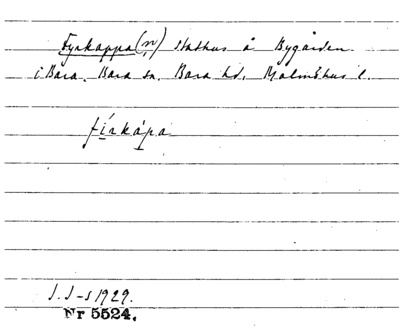 Fyrkappa(n) stathus å Bygården
i Bara. Bara sn, Bara hd, Malmöhus l.
fírkápa
J. J-s 1929.
Nr 5524.